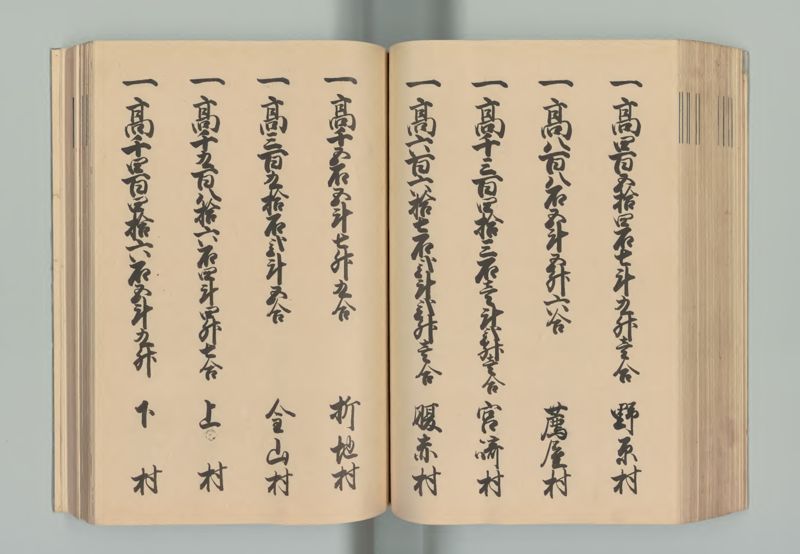 一 高四百五拾四石七斗九升壱合 野原村
一 高八百八石五斗五升六合 薦屋村
一 高千三百四拾三石壱斗弐升壱合 宮崎村
一 高六百六拾七石弐斗弐升壱合 腹赤村
一 高千五石五斗七升九合 折地村
一 高三百九拾石弐斗五合 金山村
一 高千九百八拾六石四斗四升七合 上村
一 高千四百四拾六石五斗九升 下村